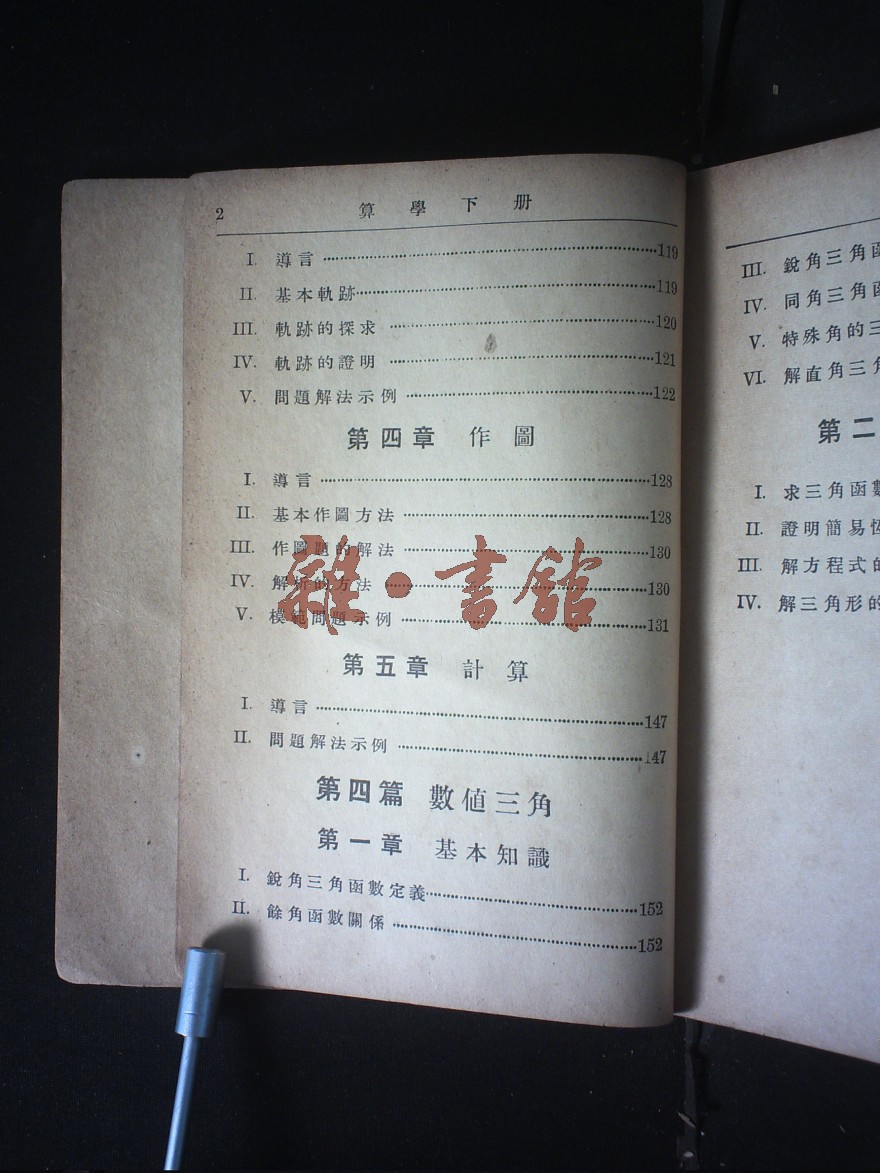 2 算學下册
I. 導言 119
II. 基本軌跡 119
III. 軌跡的探求 120
IV. 軌跡的證明 121
V. 問題解法示例 122
第四章 作圖
I. 導言 128
II. 基本作圖方法 128
III. 作圖題的解法 130
IV. 解析的方法 130
V. 模範問題示例 131
第五章 計算
I. 導言 147
II. 問題解法示例 147
第四篇 數値三角
第一章 基本知識
I. 銳角三角函數定義 152
II. 餘角函數關係 152
雜·書館
III. 銳角三角函
IV. 同角三角函
V. 特殊角的三
VI. 解直角三角
第二
I. 求三角函數
II. 證明簡易恆
III. 解方程式的
IV. 解三角形的